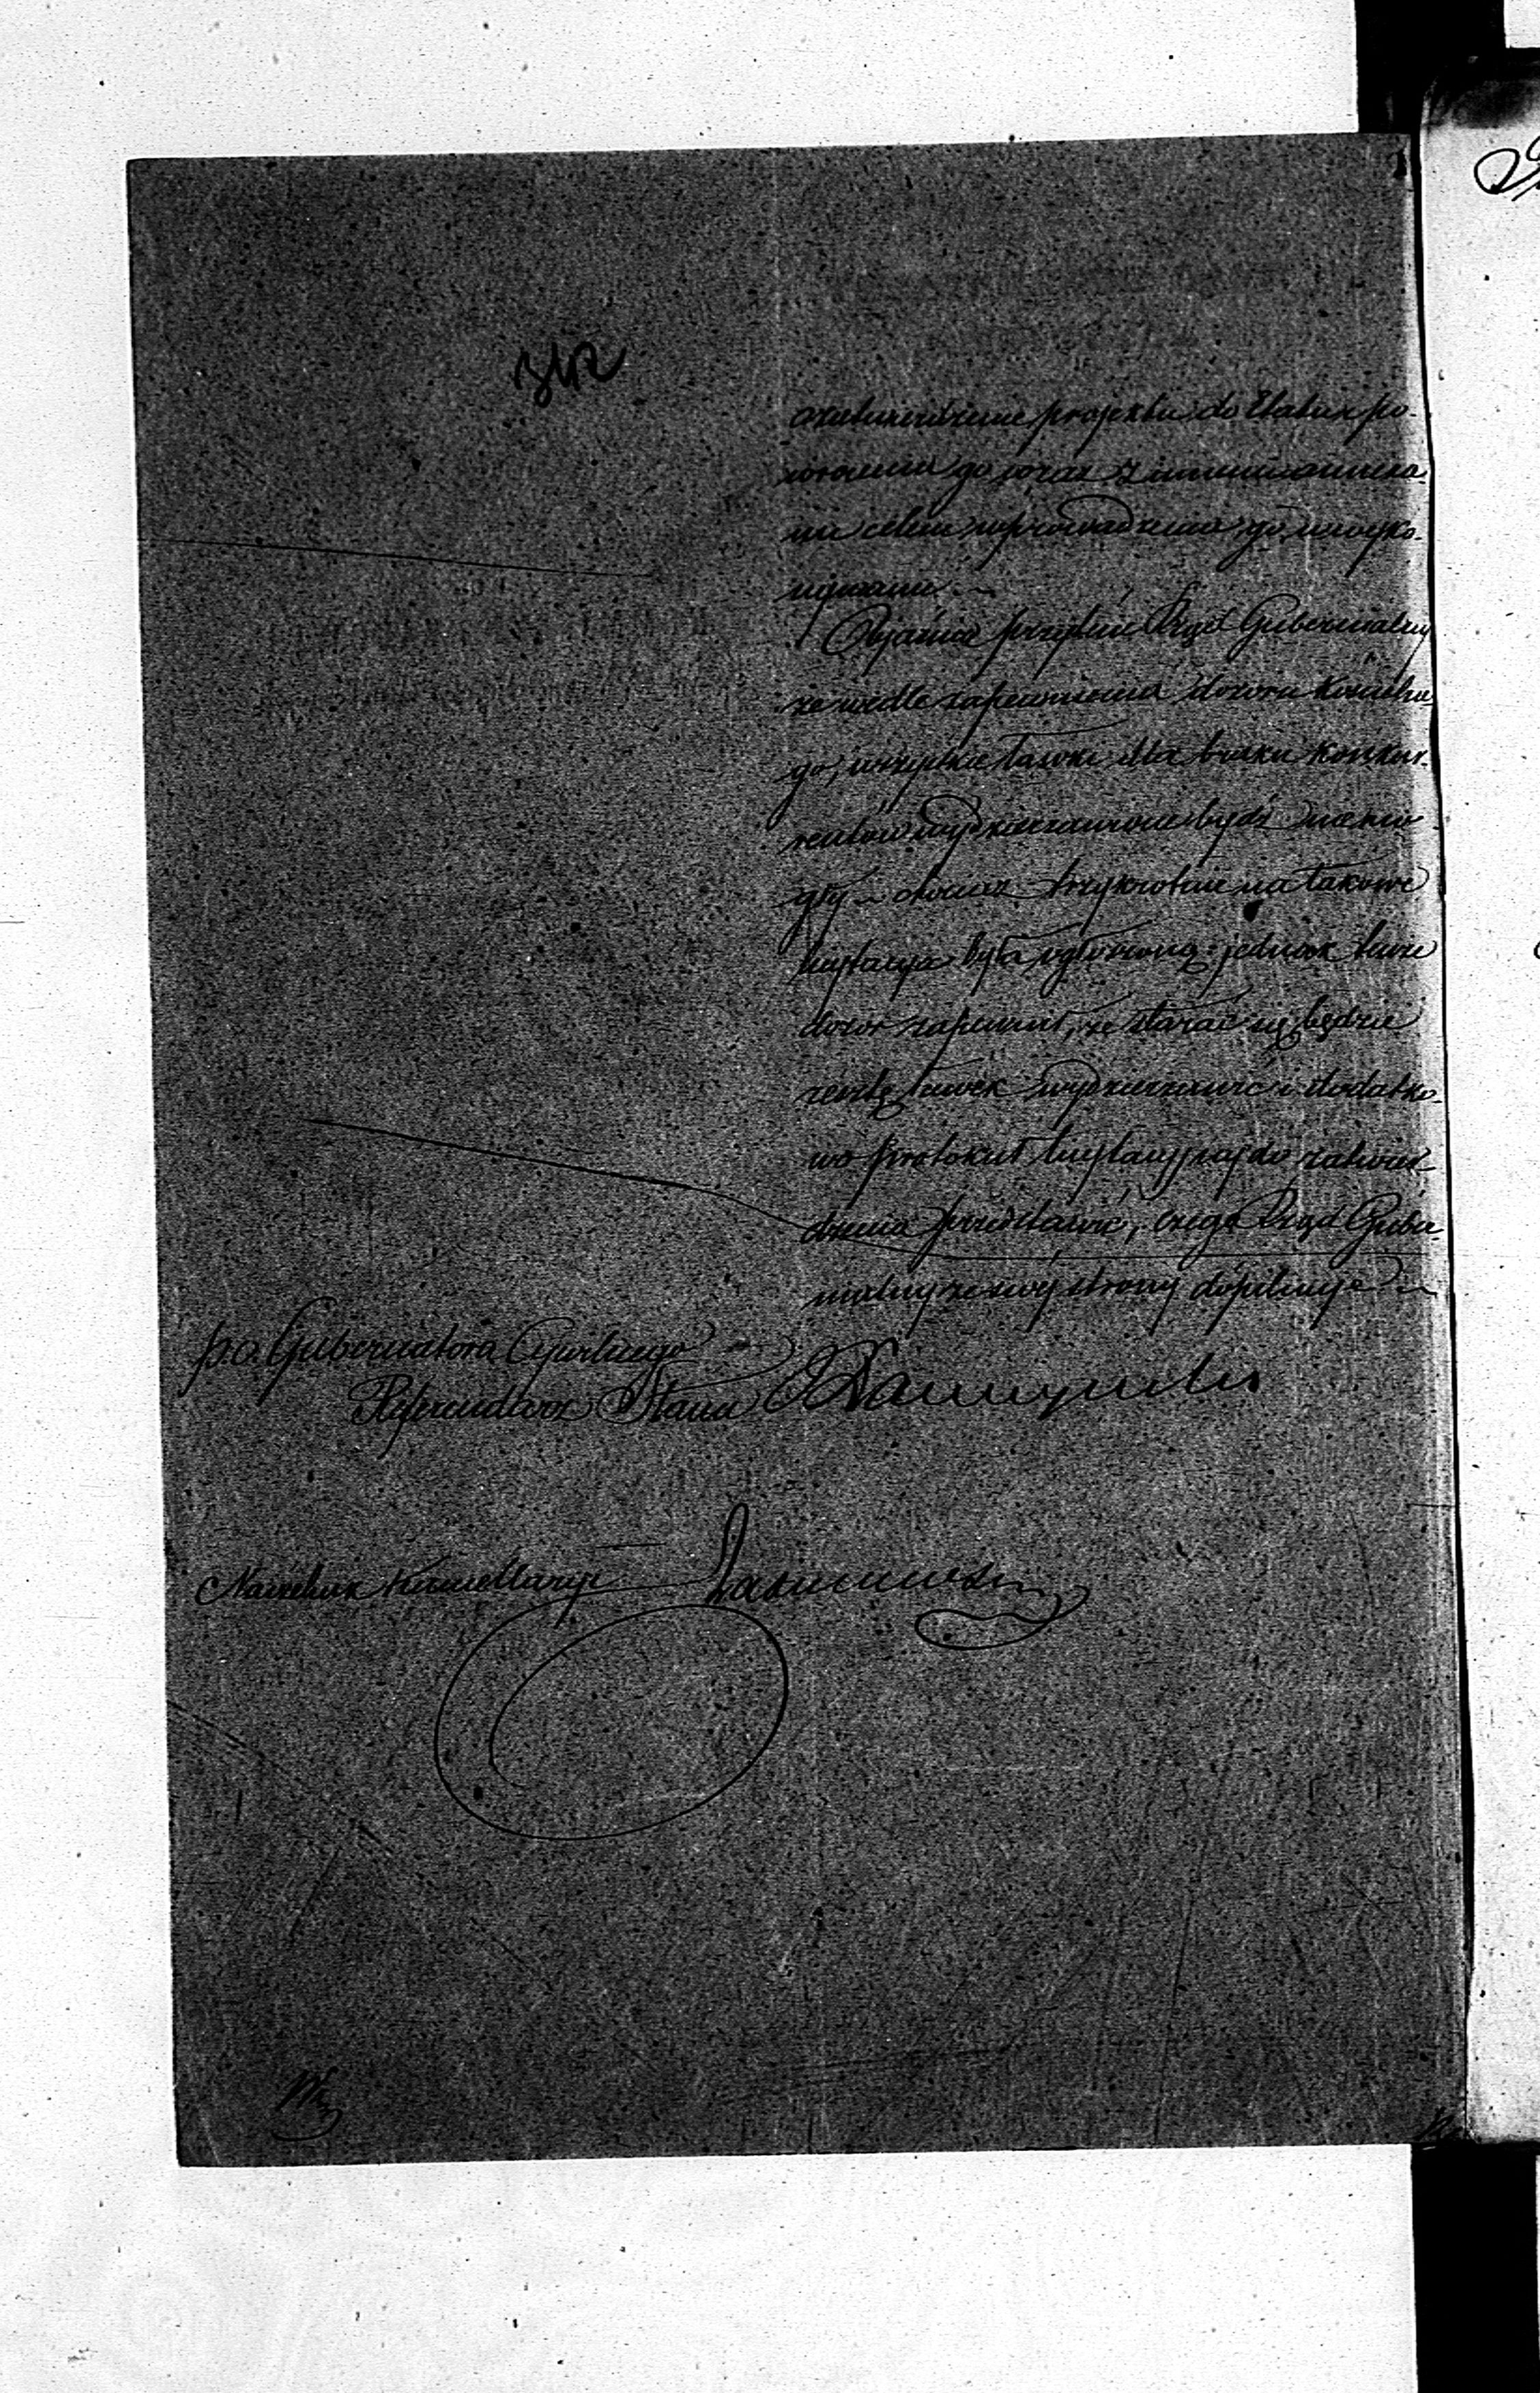 342
zatwierdzenie projektu do Etatu i po-
wrócenie go wraz z innemi annexa-
mi celem wprowadzenia go w wyko-
nywanie
Objaśnia przytem Rząd Gubernialny
że wedle zapewnienia dozoru Kościelne
go, wszystkie ławki dla braku konkur-
rentów wydzierżawione bydź nie mo-
gły chociaż trzykrotnie na takowe
licytacya była ogłoszoną; jednak tenże
dozór zapewnił, że starać się będzie
resztę ławek wydzierżawić i dodatko-
wo protokuł licytacyjny do zatwier-
dzenia przedstawić, czego Rząd Guber-
nialny ze swéj strony dopilnuje
p.o. Gubernatora Cywilnego
Referendarz Stanu
Naczelnik Kancellaryi